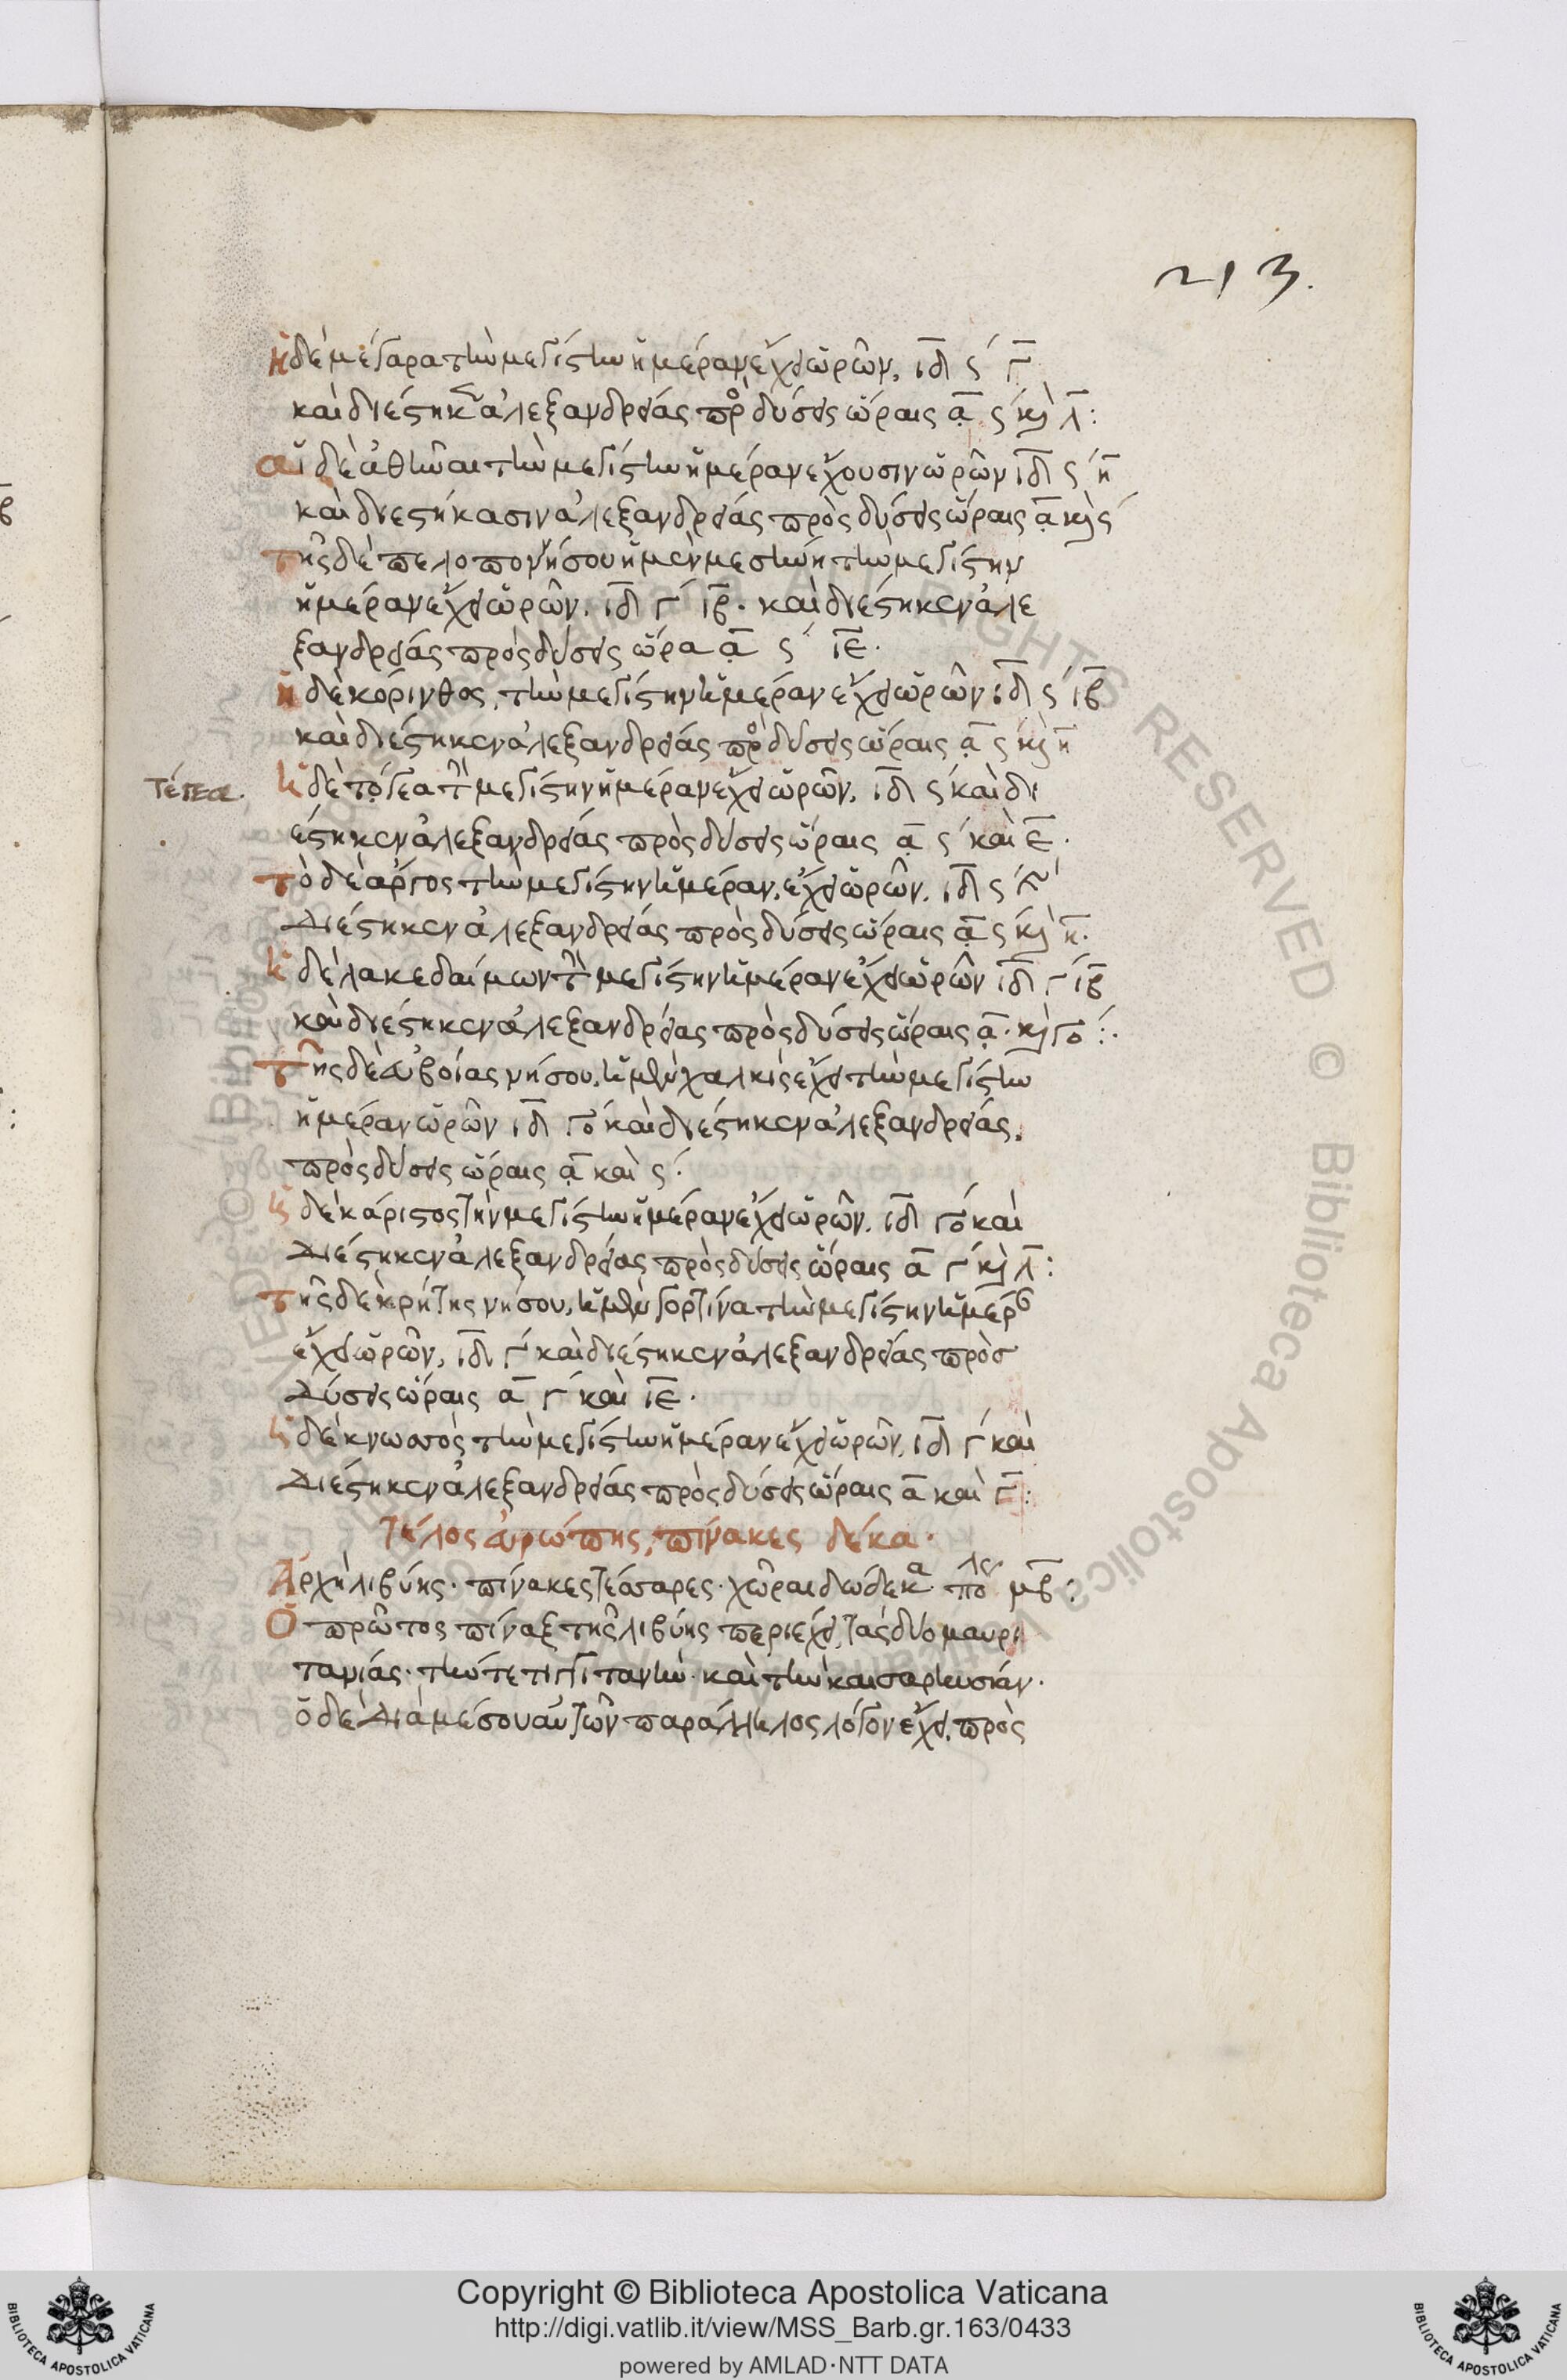 213.
ἡ δὲ μέγαρα τὴν μεγίστην ἡμέραν ἔχει ὡρῶν. ιδ ς΄ γ
καὶ διέστηκεν ἀλεξανδρείας πρὸ δύσεις ὥραις α ς΄ καὶ λ:
αἱ δὲ ἀθῆναι τὴν μεγίστην ἡμέραν ἔχουσιν ὡρῶν ιδ ς΄ η
καὶ διεστήκασιν ἀλεξανδρείας πρὸς δύσεις ὥραις α καὶ ς΄
τῆς δὲ πελοποννήσου ἡ μὲν μεσσήνη τὴν μεγίστην
ἡμέραν ἔχει ὡρῶν. ιδ γ΄ ιβ. καὶ διέστηκεν ἀλε
ξανδρείας πρὸς δύσεις ὥρα α ς΄ ιε.
ἡ δὲ κόρινθος, τὴν μεγίστην ἡμέραν ἔχει ὡρῶν ιδ ς΄ ιβ
καὶ διέστηκεν ἀλεξανδρείας πρὸ δύσεις ὥραις α ς΄ καὶ η
τέγεα.
ἡ δὲ τόγεα τὴν μεγίστην ἡμέραν ἔχει ὡρῶν. ιδ ς΄ καὶ δι
έστηκεν ἀλεξανδρείας πρὸς δύσεις ὥραις α ς΄ καὶ ε.
τὸ δὲ ἄργος τὴν μεγίστην ἡμέραν. ἔχει ὡρῶν. ιδ ς΄
διέστηκεν ἀλεξανδρείας πρὸς δύσεις ὥραις α ς΄ καὶ η.
ἡ δὲ λακεδαίμων τὴν μεγίστην ἡμέραν ἔχει ὡρῶν ιδ γ΄ ιβ
καὶ διέστηκεν ἀλεξανδρείας πρὸς δύσεις ὥραις α. καὶ γο:.
τῆς δὲ εὐβοίας νήσου. ἡ μὲν χαλκὶς ἔχει τὴν μεγίστην
ἡμέραν ὡρῶν ιδ γο΄ καὶ διέστηκεν ἀλεξανδρείας.
πρὸς δύσεις ὥραις α καὶ ς΄.
ἡ δὲ κάριστος τὴν μεγίστην ἡμέραν ἔχει ὡρῶν. ιδ γο΄ καὶ
διέστηκεν ἀλεξανδρείας πρὸς δύσεις ὥραις α γ΄ καὶ λ:
τῆς δὲ κρήτης νήσου, ἡ μὲν γορτίνα τὴν μεγίστην ἡμέραν
ἔχει ὡρῶν. ιδ γ΄ καὶ διέστηκεν ἀλεξανδρείας πρὸσ
δύσεις ὥραις α γ΄ καὶ ιε.
ἡ δὲ κνωσσὸς τὴν μεγίστην ἡμέραν ἔχει ὡρῶν. ιδ γ΄ καὶ
διέστηκεν ἀλεξανδρείας πρὸς δύσεις ὥραις α καὶ γ:
τέλος εὐρώπης, πίνακες δέκα.
Ἀρχὴ λιβύης. πίνακες τέσσαρες. χῶραι δώδεκα. πόλεις μβ:
Ὁ πρῶτος πίναξ τῆς λιβύης περιέχει, τὰς δύο μαυρι
τανίας. τήν τε τιγγιτανὴν. καὶ τὴν καισαρηνσίαν.
ὁ δὲ διὰ μέσου αὐτῶν παράλληλος λόγον ἔχει. πρὸς
Copyright © Biblioteca Apostolica Vaticana
http://digi.vatlib.it/view/MSS_Barb.gr.163/0433
powered by AMLAD·NTT DATA